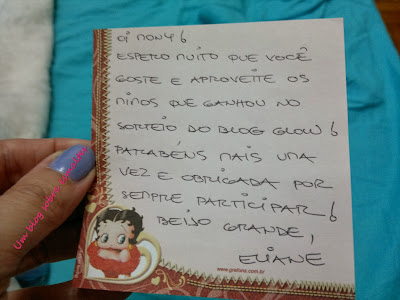 oi mony 6
ESPERO MUITO QUE VOCÊ
GOSTE E APROVEITE OS
MIMOS QUE GANHOU NO
SORTEIO DO BLOG GLOW 6
PARABÉNS MAIS UMA
VEZ E OBRIGADA POR
SEMPRE PARTICIPAR 6
BEIJO GRANDE,
ELIANE
www.grafons.com.br